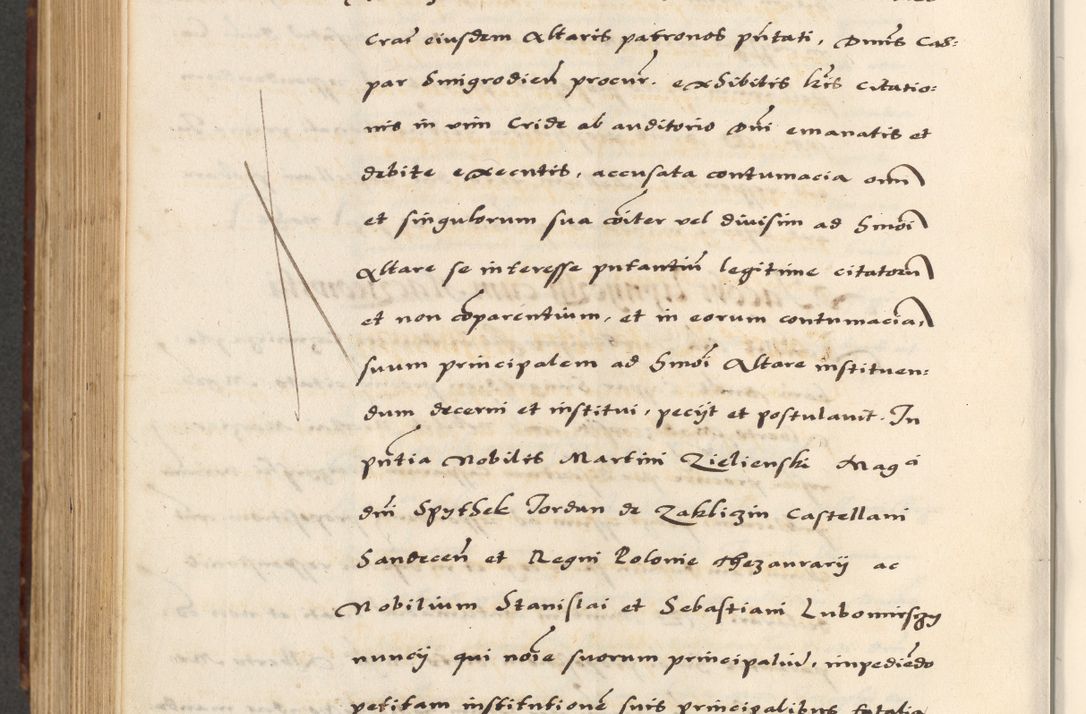 Crac eiusdem Altaris patronos pñtati, Dnus Cas:
par Smigrodien̄ procur. exhibitis lr̄is citatio:
nis in vim Cride ab auditorio Dn̄i emanatis et
debite executis, accusata contumacia om̄
et singulorum sua co͞iter vel divisim ad h͞moi
Altare se interesse putantiū legitime citatorū
et non co͞parentium, et in eorum contumacia,
suum principalem ad h͞moi Altare instituen:
dum decerni et institui, peciit et postulavit. In
pn̄tia Nobilis Martini Zielienski Mag ci
dn̄i Spythek Jordan de Zakliczin Castellani
Sandecen̄ et Regni Polonie thezaurarij ac
Nobilium Stanislai et Sebastiani Lubomirszy
nuncij qui no͞ie suorum principaliū, impediēdo
petitam institutionē suis principalibus